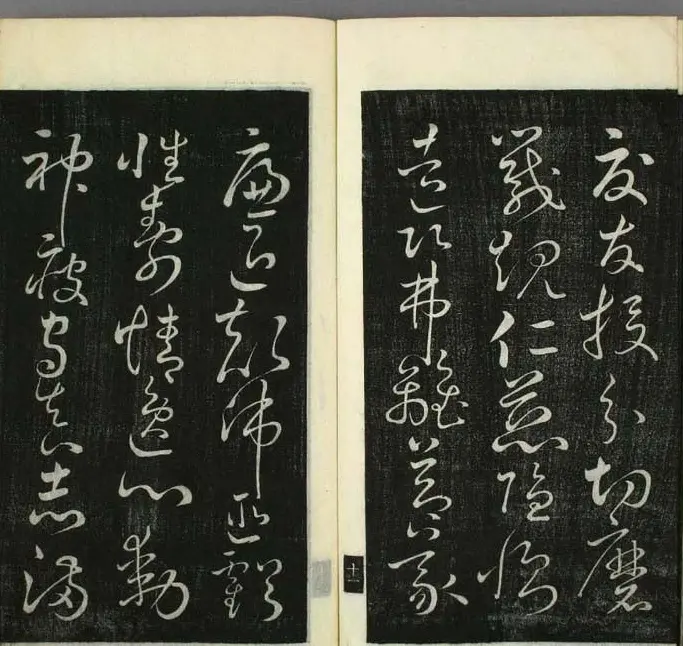 交友投分切磨
箴規仁慈隱惻
造次弗離節義
廉退顛沛匪虧
性靜情逸心動
神疲守真志滿
十一